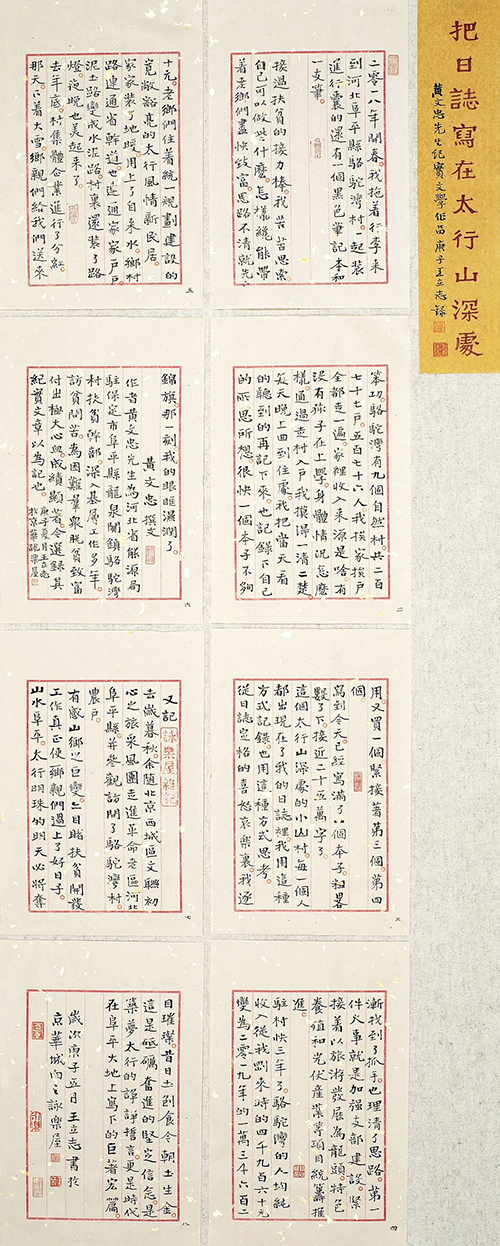 把日誌寫在太行山深處
黄文忠先生記實文學作品 庚子王立志録
二零一八年開春我拖着行李來
到河北阜平縣駱駝灣村。一起裝
進行囊的還有一個黑色筆記本和
一支筆。
接過扶貧的接力棒我苦苦思索
自己可以做些什麽。怎樣纔能帶
着老鄉們盡快致富。思路不清就先
笨功。駱駝灣有九個自然村。共二百
七十七户。五百七十六人我挨家挨戶
全都走一遍。家裡收入來源是啥有
没有孩子在上學。身體情況怎麽
樣。通過走村入户我摸得一清二楚
每天晚上回到住處。我把當天看
的聽到的再記下來。也記録下自己
的所思所想。很快一個本子不夠
二
用。又買一個緊接著第三個。第四
個
寫到今天已經寫滿了八個本子。粗略
數了下。接近二十五萬字了
這個太行山深處的小山村每一個人
都出現在了我的日誌裡我用這種
方式記録。也用這種方式思考。
從日誌定格的喜怒哀樂裏我逐
三
漸找到了抓手。也理清了思路。第一
件大事就是加强支部建設。緊
接着以旅游發展爲龍頭。特色
養殖和光伏産業等項目統籌推
進
駐村快三年了。駱駝灣的人均純
收入從我剛來時的四千九百六十元
變為二零一九年的一萬三千六百二
四
十元。老鄉們住着統一規劃建設的
寬敞豁亮的太行風情新民居。
家家裝了地暖用上了自來水。鄉村
路連通省幹道。也連通家家戶戶
泥土路變成水泥路。村裏還裝了路
燈。夜晚也美起來了。
去年底村集體企業進行了分紅
那天。下着大雪。鄉親們給我們送來
五
錦旗那一刻我的眼眶濕潤了。
黄文忠 撰文
作者黄文忠先生為河北省能源局
駐保定市阜平縣龍泉關鎮駱駝灣
村扶貧幹部深入基層工作多年。
訪貧問苦為困難羣衆脱貧致富
付出極大心血成績顯著。今選録其
紀實文章以為記也。
庚子夏月王立志
於京華詠樂屋
六
又記
詠樂屋雜記
去歲暮秋。余隨北京西城區文聯初
心之旅采風團走進革命老區河北
阜平縣。并參觀訪問了駱駝灣村。
農戶。
有感山鄉之巨變。目睹扶貧開發
工作真正使鄉親們過上了好日子。
山水阜平。太行明珠的明天必將奪
七
目璀璨。昔日土刨食。今朝土生金。
這是砥礪奮進的堅定信念。是
築夢太行的諄諄誓言。更是時代
在阜平大地上寫下的巨著宏篇。
歲次庚子五月王立志書於
京華城南之詠樂屋
八